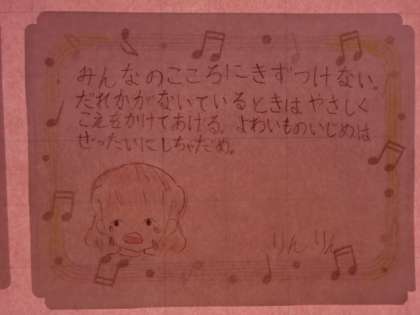 みんなのこころにきずつけない。
だれかがないているときはやさしく
こえをかけてあげる。よわいものいじめは
ぜったいにしちゃだめ。
りんりん